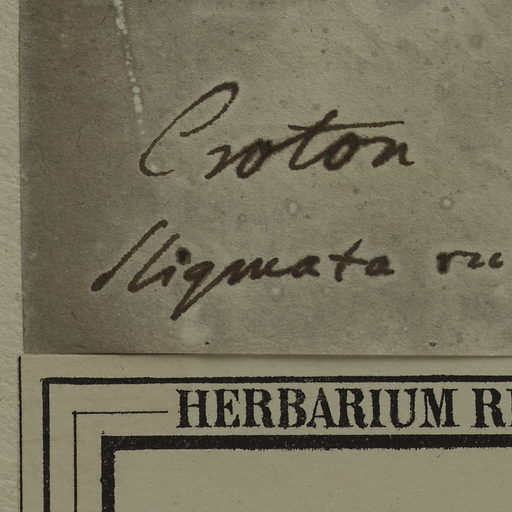 Croton
Stigmata
HERBARIUM